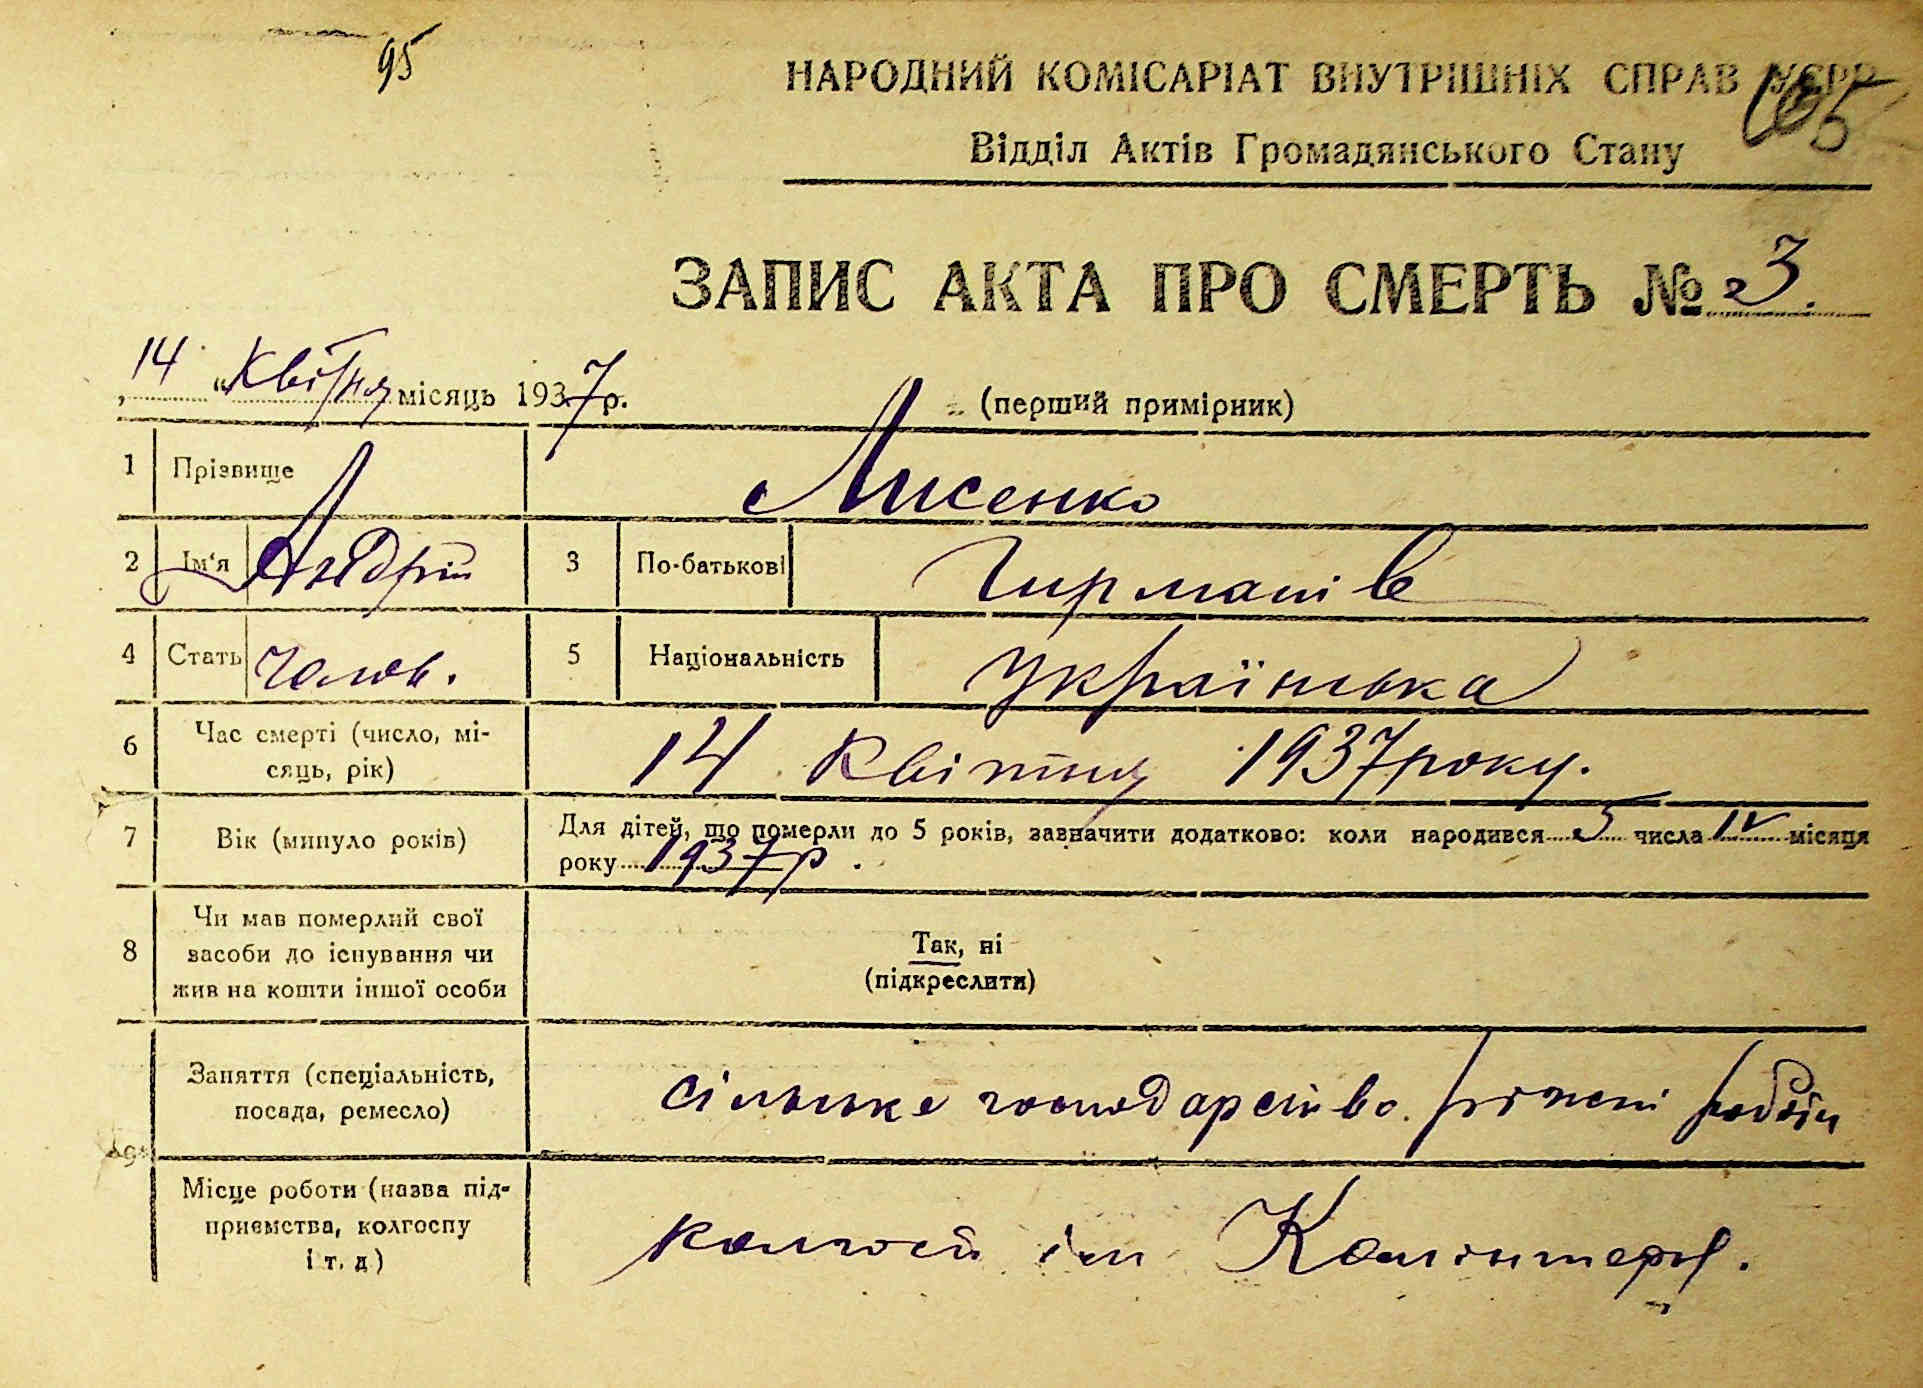 95
НАРОДНИЙ КОМІСАРІАТ ВНУТРІШНІХ СПРАВ УСРР
105
Відділ Актів Громадянського Стану
ЗАПИС АКТА ПРО СМЕРТЬ № 3.
„14“ Квітня місяць 1937 р.
(перший примірник)
1 Прізвище Лисенко
2 Ім'я Андрій 3 По-батькові
4 Стать Чолов. 5 Національність Українська
6 Час смерті (число, мі-
сяць, рік) 14 Квітня 1937 року.
7 Вік (минуло років) Для дітей, що померли до 5 років, зазначити додатково: коли народився 5 числа IV місяця
року 1937 р.
8 Чи мав померлий свої
засоби до існування чи
жив на кошти іншої особи
Так, ні
(підкреслити)
9
Заняття (спеціальність,
посада, ремесло) сільське господарство. ріжні
Місце роботи (назва під-
приємства, колгоспу
і т. д) колгосп ім Комінтерн.